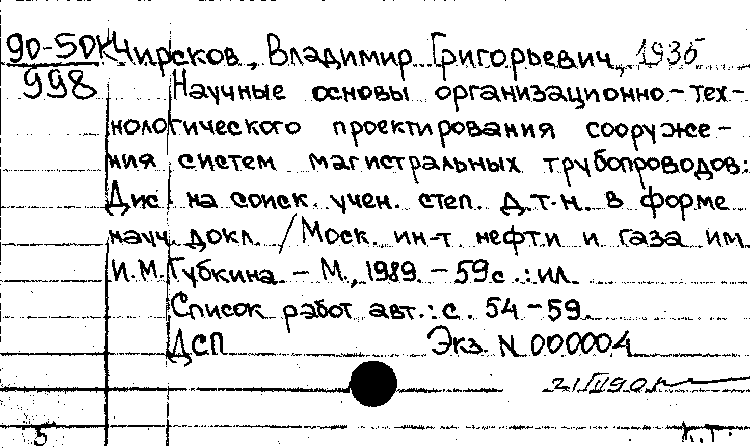 90-5ДК Чирсков, Владимир Григорьевич, 1935
998 Научные основы организационно-тех-
нологического проектирования сооруже-
ния систем магистральных трубопроводов:
Дис. на соиск. учен. степ. д.т.н. в форме
науч. докл. / Моск. ин-т нефти и газа им.
И.М. Губкина. - М., 1989. - 59с.: ил.
Список работ авт.: с. 54-59.
ДСП Экз. N 000004
5